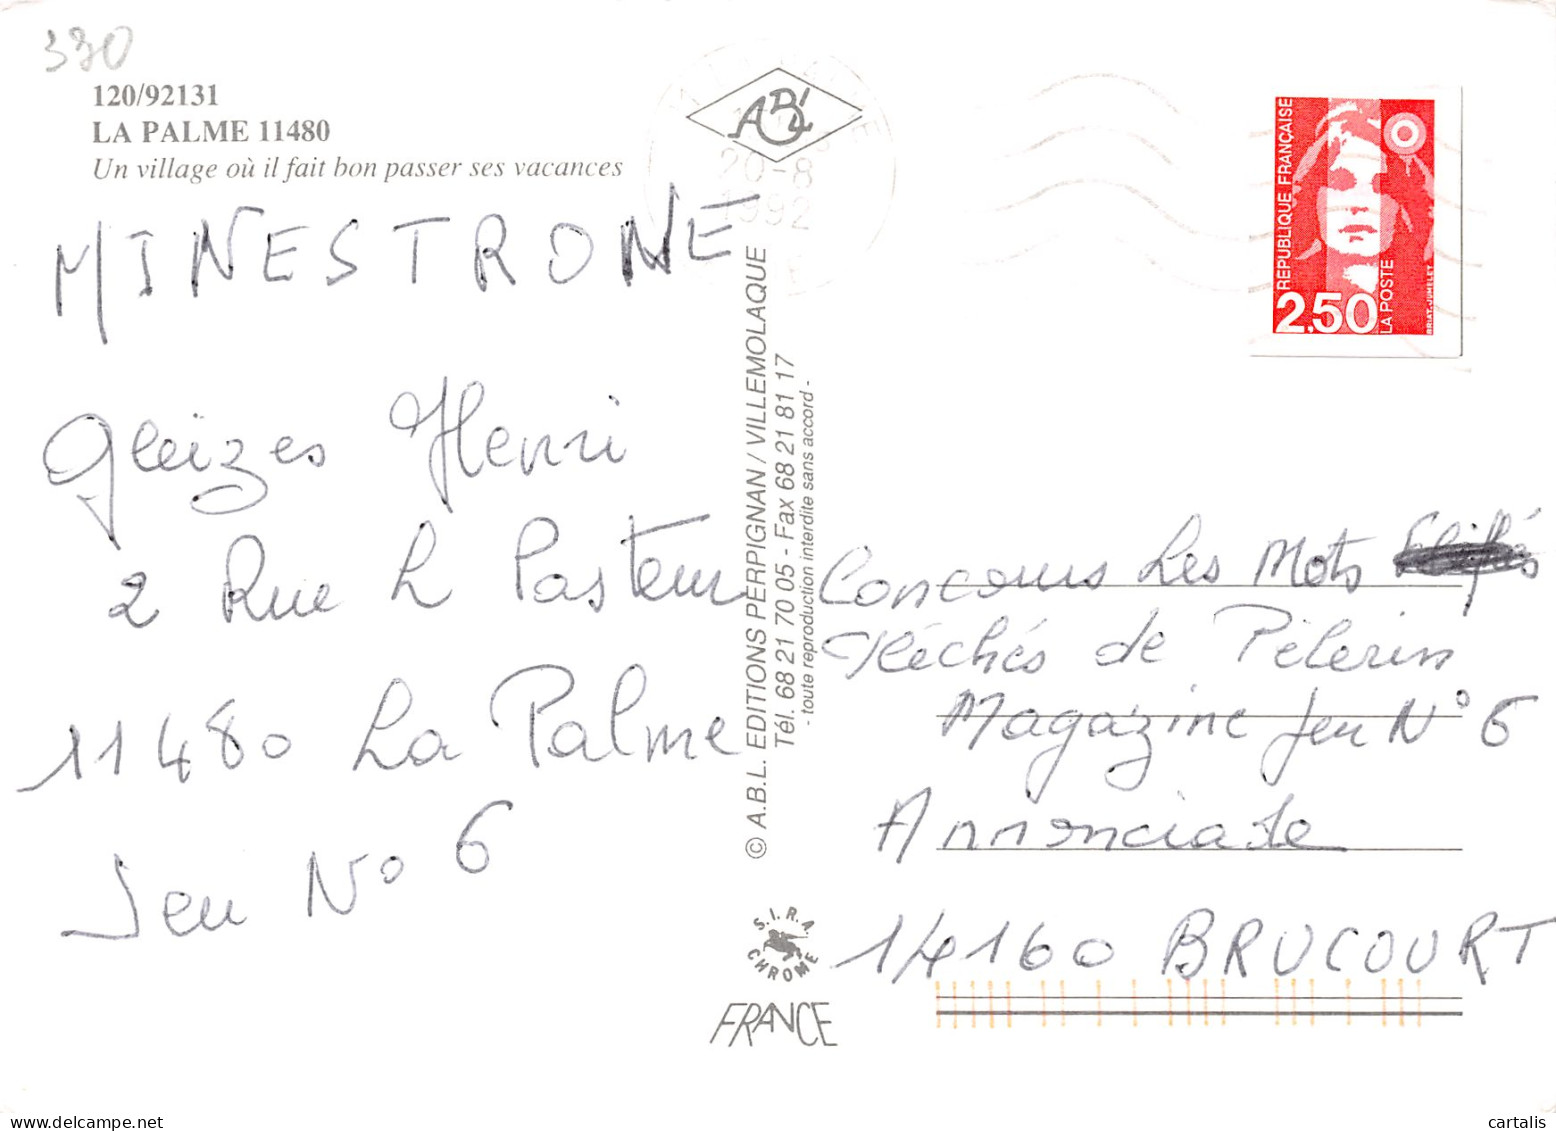 330
120/92131
LA PALME 11480
Un village où il fait bon passer ses vacances
MINESTRONE
Gleizes Henri
2 Rue L Pasteur
11480 La Palme
Jeu N° 6
© A.B.L. EDITIONS PERPIGNAN / VILLEMOLAQUE
Tél. 68 21 70 05 - Fax 68 21 81 17
- toute reproduction interdite sans accord -
S.I.R.A.
CHROME
FRANCE
ABL
20-8
1992
REPUBLIQUE FRANÇAISE
2,50
LA POSTE
BRIAT-JUMELET
Concours Les Mots
Fléchés de Pèlerin
Magazine Jeu N° 6
Annonciade
14160 BRUCOURT
cartalis